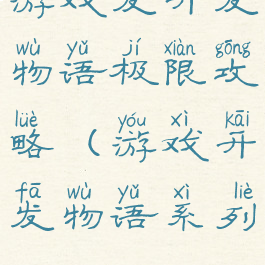 游戏发开发
wù yǔ jí xiàn gōng
物语极限攻
lüè yóu xì kāi
略（游戏开
fā wù yǔ xì liè
发物语系列